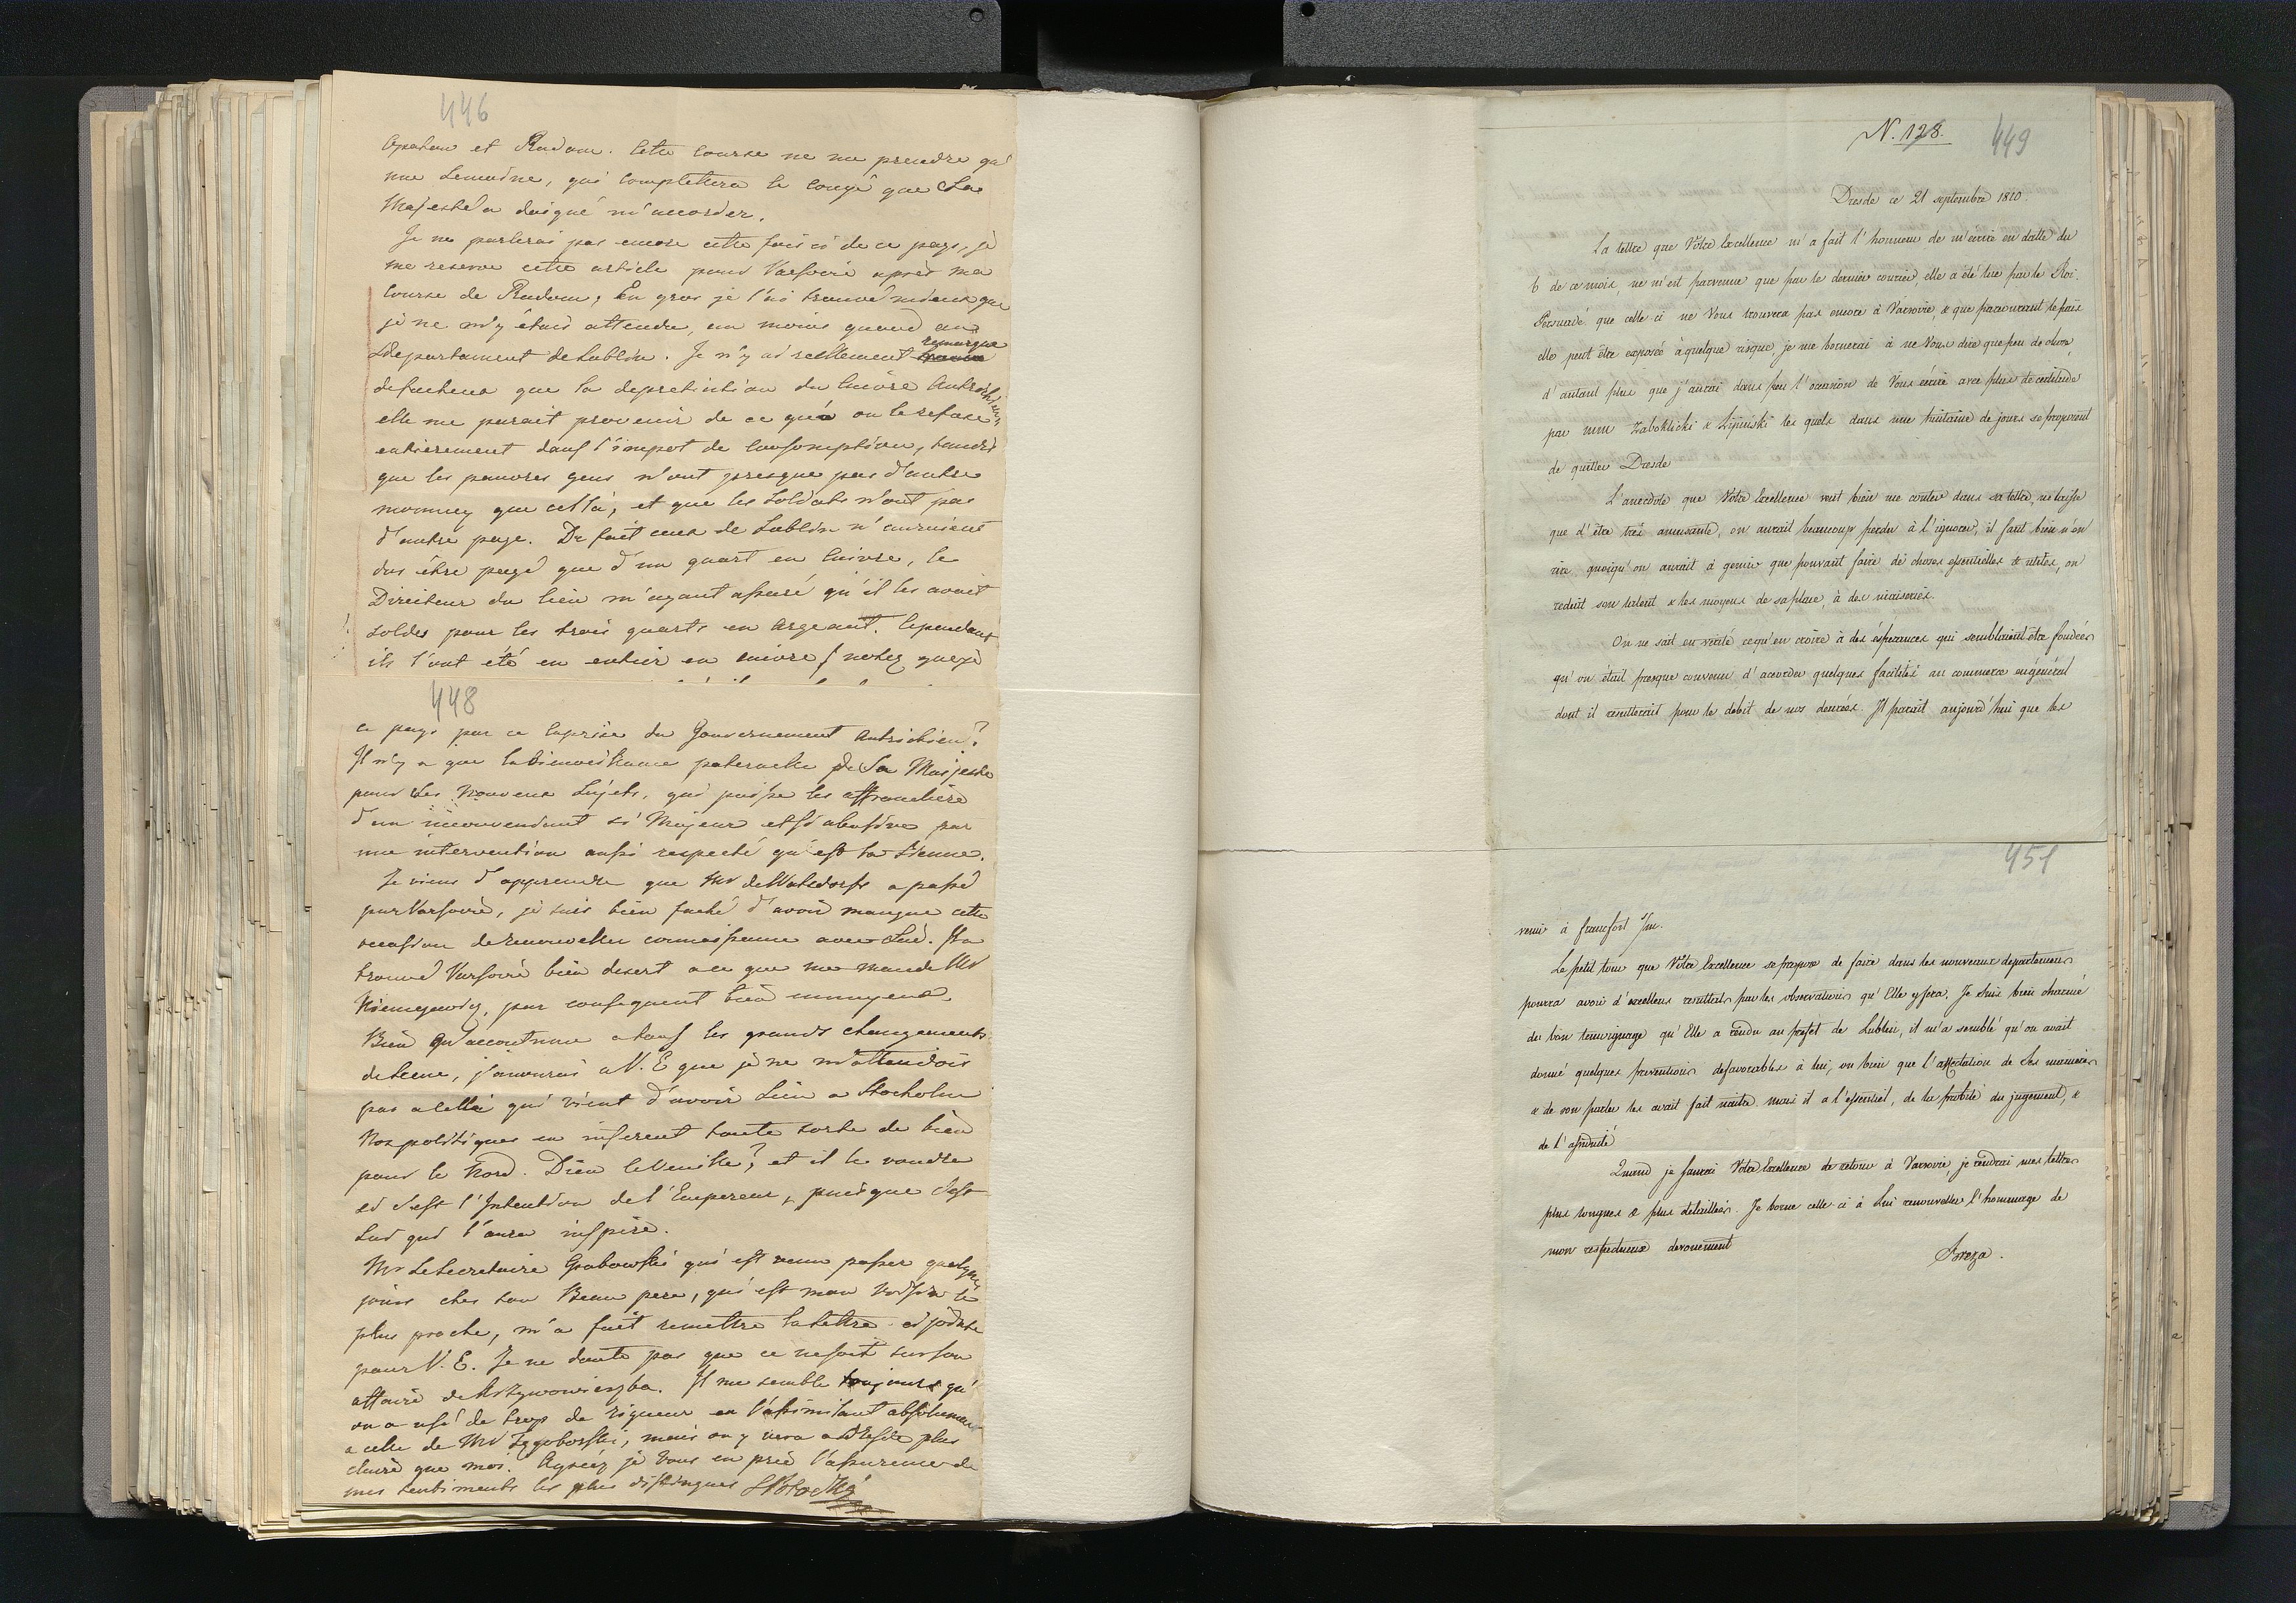 446
Opatow et Radom. Cette course ne me prendra qu'
une semaine, qui complettera le congé que Sa
Majesté a daigné m'accorder.
Je ne parlerai pas encore cette fois ci de ce pays, je
me reserve cette article pour Varsovie après ma
course de Radom; En gros je l'ai trouvé mieux que
je ne m'y étais attendu, au moins quand au
Departament de Lublin. Je n'y ai reellement remarqué
defacheux que la depretiation du Cuivre Autrichien,
elle me parait provenir de ce qu'on le refuse
entierement dans l'impot de consomption, tandis
que les pauvres gens n'ont presque pas d'autre
monnoy que cella, et que les soldats n'ont pas
d'autre paye. De fait ceux de Lublin n'auroient
dus être payé que d'un quart en cuivre, le
Directeur du lieu m'ayant assuré qu'il les avait
soldes pour les trois quarts en Argeant. Cependant
ils l'ont été en entier en cuivre / notez que je
448
ce pays par ce Caprice du Gouvernement Autrichien?
Il n'y a que la bienveillance paternelle de Sa Majesté
pour Ses Nouveaux Sujets, qui puisse les affranchire
d'un inconvendant si Majeur et si abusive par
une intervention aussi respecté qu'est la Sienne.
Je viens d'apprendre que Mr de Watzdorff a passé
par Varsovie, je suis bien faché d'avoir manqué cette
occasion de renouveller connoissance avec Lui. Il a
trouvé Varsovie bien desert a ce que me mande Mr
Niemcewicz, par consequent bien ennuyeux.
Bien qu'accoutumé a tous les grands changements
de scene, j'avouerais a V. E que je ne m'attendois
pas a cella qui vient d'avoir Lieu a Stocholm
Nos politiques en inferent toute sorte de bien
pour le Nord. Dieu le veuille? et il le voudra
si c'est l'Intention de l'Empereur, puisque c'est
Lui qui l'aura inspiré.
Mr le Secretaire Grabowski qui est venu passer quelques
jours chez son Beau pere, qui est mon voisin le
plus proche, m'a fait remettre la lettre ci jointe
pour V. E. Je ne doute pas que ce ne soit sur son
affaire de Krzywowierzba. Il me semble toujours qu'
on a usé de trop de rigueur en l'assimilant absolument
a celle de Mr , mais on y vera a Dresde plus
claire que moi. Agréez je Vous en prie l'assurence de
mes sentiments les plus distingues SPotocki
N. 128.
449
Dresde ce 21 septembre 1810.
La lettre que Vôtre Excellence m'a fait l'honneur de m'écrire en datte du
6 de ce mois, ne m'est parvenue que par le dernier courier, elle a été lue par le Roi.
Persuadé que celle ci ne Vous trouvera pas encore à Varsovie, & que parcourant le païs
elle peut être exposée à quelque risque, je me bornerai à ne Vous dire que peu de chose,
d'autant plus que j'aurai dans peu l'occasion de Vous écrire avec plus de certitude
par mm Zaboklicki & Lipinski les quels dans une huitaine de jours se proposent
de quitter Dresde
L'anecdote que Votre Excellence veut bien me conter dans sa lettre, ne laisse
que d'être très amusante, on aurait beaucoup perdu à l'ignorer, il faut bien n'en
rire quoiqu'on aurait à gemir que pouvant faire de choses essentielles & utiles, on
reduit son talent & les moyens de sa place, à des niaiseries.
On ne sait en verité ce qu'en croire à des ésperances qui semblaient être fondées
qu'on était presque convenu d'accorder quelques facilités au commerce en général
dont il resulterait pour le debit de nos denrées. Il parait aujourd'hui que les
451
venir à Francfort s/m.
Le petit tour que Vôtre Excellence se propose de faire dans les nouveaux departemens
pourra avoir d'excellens resultats par les observations qu'Elle y fera. Je suis bien charmé
du bon temoignage qu'Elle a rendu au prefet de Lublin, il m'a semblé qu'on avait
donné quelques preventions defavorables à lui, ou bien que l'affectation de Ses manieres
& de son parler les avait fait naitre mais il a l'essentiel, de la probité du jugement, &
de l'assiduité
Quand je saurai Votre Excellence de retour à Varsovie, je rendrai mes lettres
plus longues & plus détaillées. Je borne celle ci à Lui renouveller l'hommage de
mon respectueux devouement
Breza.